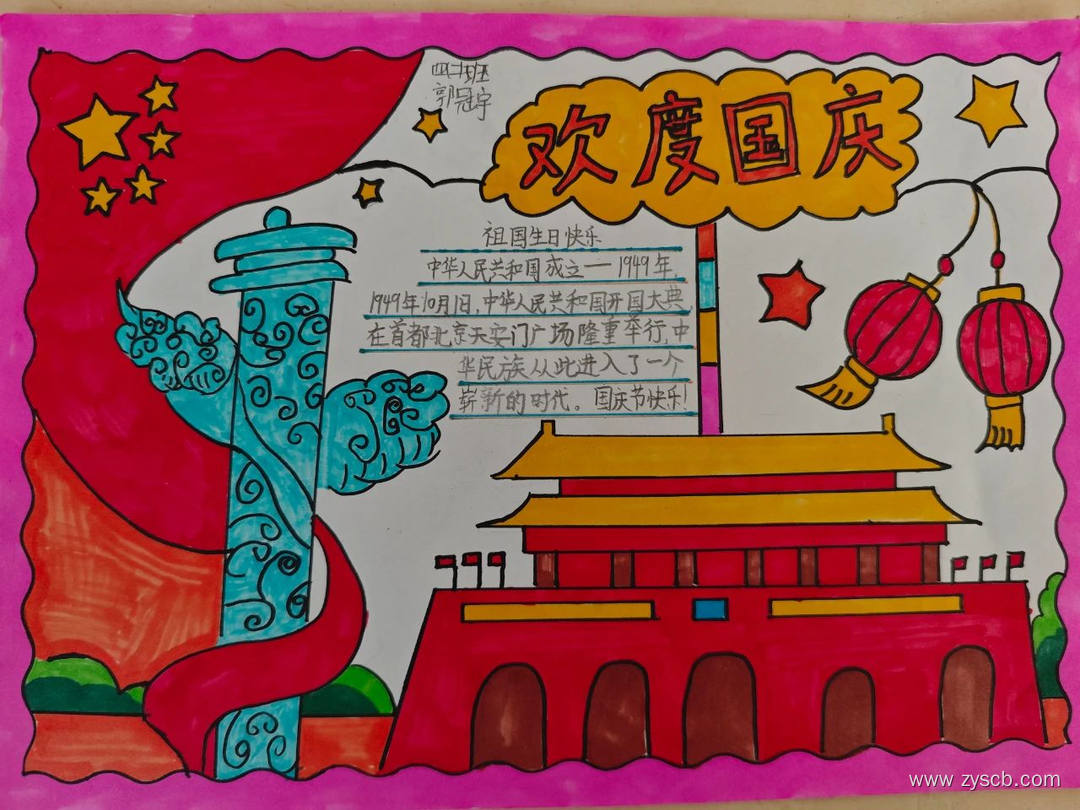 四.2班
郭冠宇
欢度国庆
祖国生日快乐
中华人民共和国成立——1949年,
1949年10月1日,中华人民共和国开国大典
在首都北京天安门广场隆重举行,中
华民族从此进入了一个
崭新的时代。国庆节快乐!
www.zyscb.com